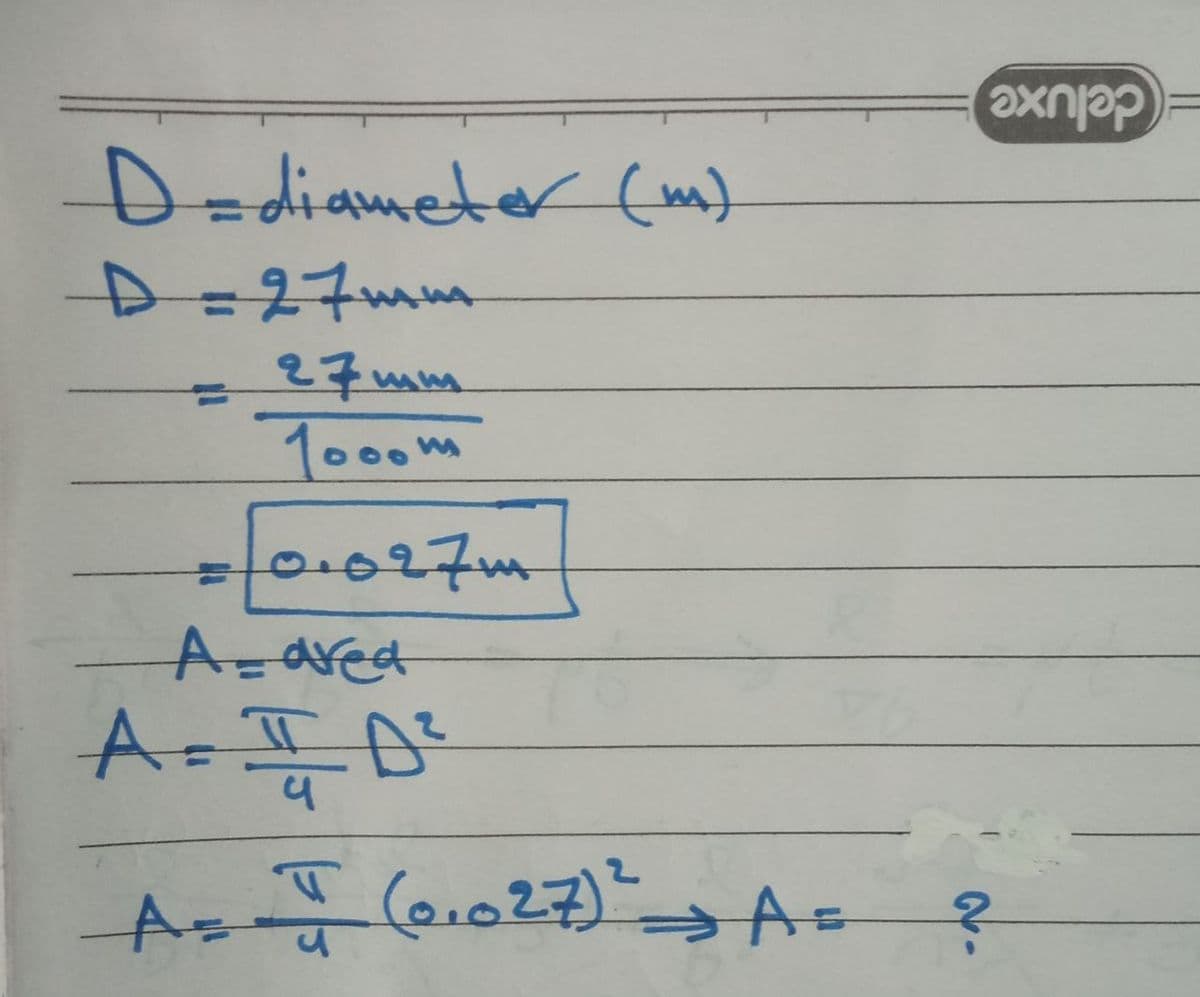 deluxe
D = diameter (m)
D = 27mm
= 27mm
1000m
= 0.027m
A = area
A = π/4 D²
A = π/4 (0.027)² ⇒ A = ?